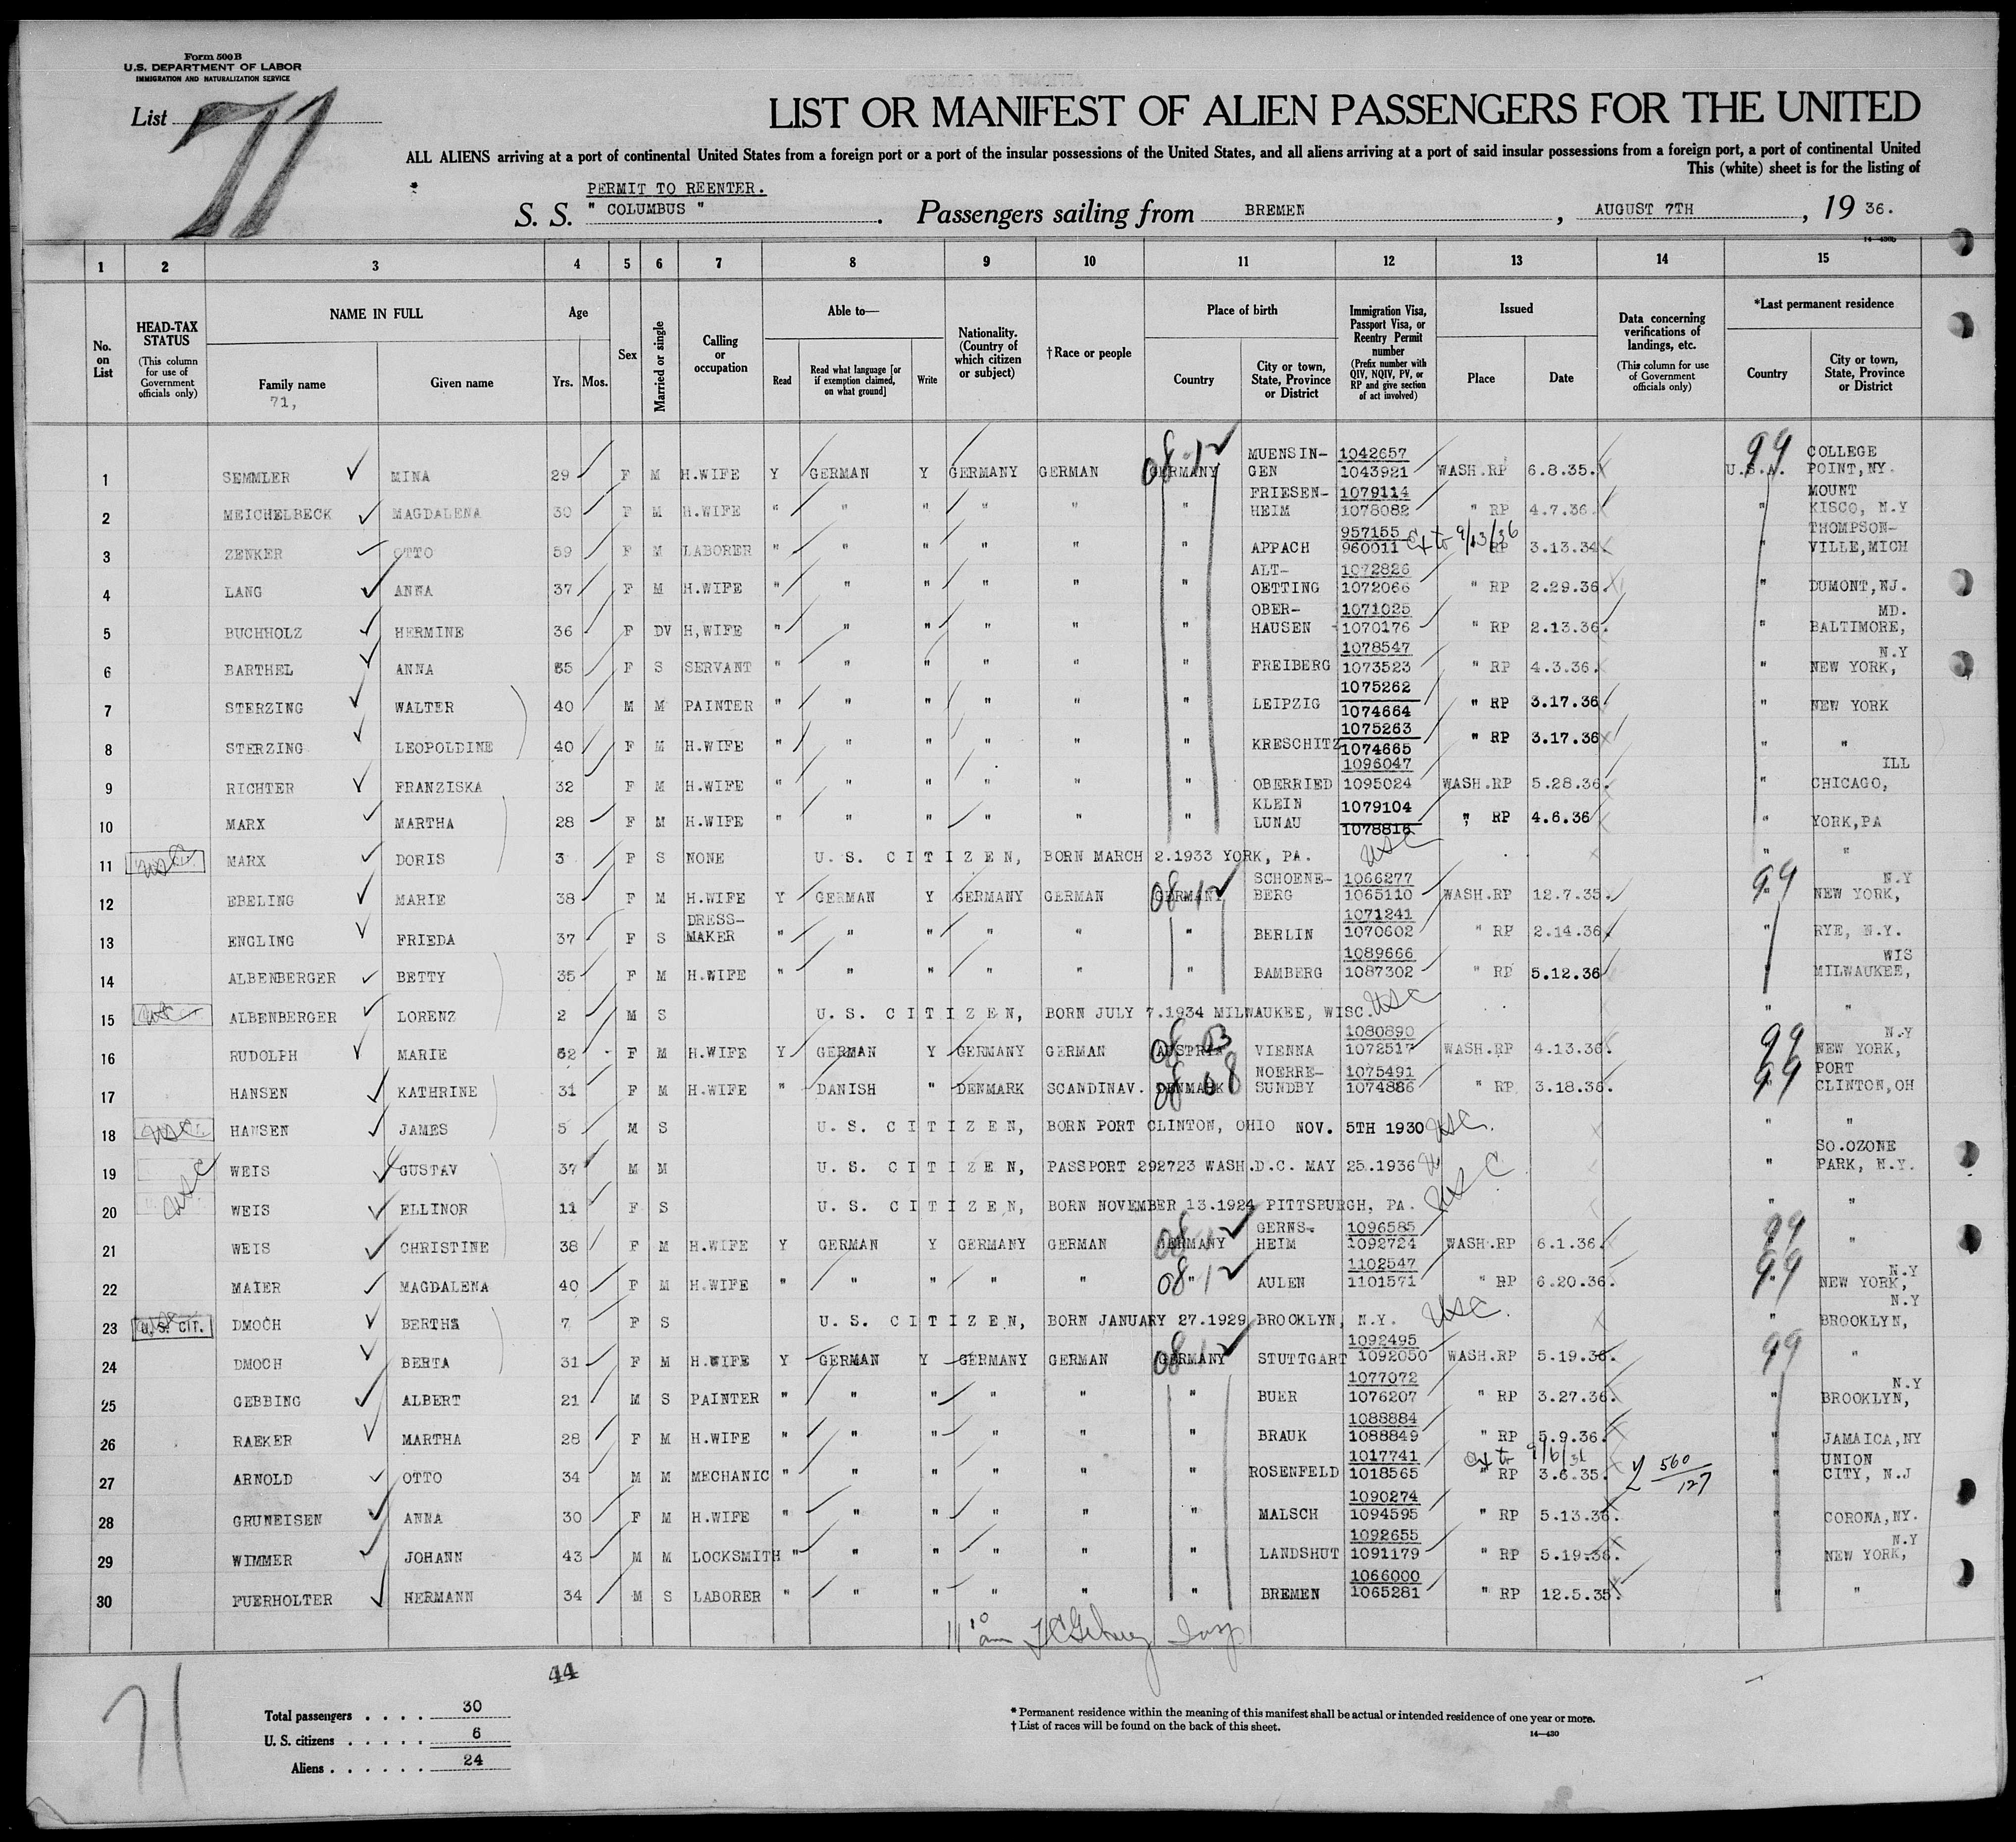 Form 500B
U.S. DEPARTMENT OF LABOR
IMMIGRATION AND NATURALIZATION SERVICE
List 71
LIST OR MANIFEST OF ALIEN PASSENGERS FOR THE UNITED
ALL ALIENS arriving at a port of continental United States from a foreign port or a port of the insular possessions of the United States, and all aliens arriving at a port of said insular possessions from a foreign port, a port of continental United
This (white) sheet is for the listing of
* PERMIT TO REENTER.
S. S. " COLUMBUS " . Passengers sailing from BREMEN , AUGUST 7TH , 19 36.
14—430b
1 2 3 4 5 6 7 8 9 10 11 12 13 14 15
No. on List
HEAD-TAX STATUS (This column for use of Government officials only)
NAME IN FULL Family name Given name
71,
Age Yrs. Mos.
Sex
Married or single
Calling or occupation
Able to— Read Read what language [or if exemption claimed, on what ground] Write
Nationality. (Country of which citizen or subject)
†Race or people
Place of birth Country City or town, State, Province or District
Immigration Visa, Passport Visa, or Reentry Permit number (Prefix number with QIV, NQIV, PV, or RP and give section of act involved)
Issued Place Date
Data concerning verifications of landings, etc. (This column for use of Government officials only)
*Last permanent residence Country City or town, State, Province or District
08-12 MUENSIN- 1042657 99 COLLEGE
1 SEMMLER MINA 29 F M H.WIFE Y GERMAN Y GERMANY GERMAN GERMANY GEN 1043921 WASH.RP 6.8.35. U.S.A. POINT,NY.
FRIESEN- 1079114 MOUNT
2 MEICHELBECK MAGDALENA 30 F M H.WIFE " " " " " " HEIM 1078082 " RP 4.7.36. " KISCO, N.Y
957155 Ext to 9/13/36 THOMPSON-
3 ZENKER OTTO 59 F M LABORER " " " " " " APPACH 960011 RP 3.13.34. " VILLE,MICH
ALT- 1072826
4 LANG ANNA 37 F M H.WIFE " " " " " " OETTING 1072066 " RP 2.29.36. " DUMONT,NJ.
OBER- 1071025 MD.
5 BUCHHOLZ HERMINE 36 F DV H,WIFE " " " " " " HAUSEN 1070176 " RP 2.13.36. " BALTIMORE,
1078547 N.Y
6 BARTHEL ANNA F S SERVANT " " " " " " FREIBERG 1073523 " RP 4.3.36. " NEW YORK,
1075262
7 STERZING WALTER 40 M M PAINTER " " " " " " LEIPZIG 1074664 " RP 3.17.36 " NEW YORK
1075263
8 STERZING LEOPOLDINE 40 F M H.WIFE " " " " " " KRESCHITZ 1074665 " RP 3.17.36 " "
1096047 ILL
9 RICHTER FRANZISKA 32 F M H.WIFE " " " " " " OBERRIED 1095024 WASH.RP 5.28.36. " CHICAGO,
KLEIN 1079104
10 MARX MARTHA 28 F M H.WIFE " " " " " " LUNAU 1078816 " RP 4.6.36 " YORK,PA
11 USC MARX DORIS 3 F S NONE U.S. CITIZEN, BORN MARCH 2.1933 YORK, PA. USC " "
08-12 SCHOENE- 1066277 99 N.Y
12 EBELING MARIE 38 F M H.WIFE Y GERMAN Y GERMANY GERMAN GERMANY BERG 1065110 WASH.RP 12.7.35. " NEW YORK,
DRESS- 1071241
13 ENGLING FRIEDA 37 F S MAKER " " " " " " BERLIN 1070602 " RP 2.14.36 " RYE, N.Y.
1089666 WIS
14 ALBENBERGER BETTY 35 F M H.WIFE " " " " " " BAMBERG 1087302 " RP 5.12.36 " MILWAUKEE,
15 USC ALBENBERGER LORENZ 2 M S U.S. CITIZEN, BORN JULY 7.1934 MILWAUKEE, WISC. USC " "
08 03 1080890 99 N.Y
16 RUDOLPH MARIE F M H.WIFE Y GERMAN Y GERMANY GERMAN AUSTRIA VIENNA 1072517 WASH.RP 4.13.36. NEW YORK,
08 08 NOERRE- 1075491 99 PORT
17 HANSEN KATHRINE 31 F M H.WIFE " DANISH " DENMARK SCANDINAV. DENMARK SUNDBY 1074886 " RP 3.18.36. " CLINTON,OH
18 USC HANSEN JAMES 5 M S U.S. CITIZEN, BORN PORT CLINTON, OHIO NOV. 5TH 1930 USC. " "
SO.OZONE
19 USC WEIS GUSTAV 37 M M U.S. CITIZEN, PASSPORT 292723 WASH.D.C. MAY 25.1936 " PARK, N.Y.
20 WEIS ELLINOR 11 F S U.S. CITIZEN, BORN NOVEMBER 13.1924 PITTSBURGH, PA. USC " "
08-12 GERNS- 1096585 99
21 WEIS CHRISTINE 38 F M H.WIFE Y GERMAN Y GERMANY GERMAN GERMANY HEIM 1092724 WASH.RP 6.1.36. " "
08-12 1102547 99 N.Y
22 MAIER MAGDALENA 40 F M H.WIFE " " " " " " AULEN 1101571 " RP 6.20.36. " NEW YORK,
N.Y
23 U.S. CIT. DMOCH BERTHA 7 F S U.S. CITIZEN, BORN JANUARY 27.1929 BROOKLYN, N.Y. USC. " BROOKLYN,
08-12 1092495 99
24 DMOCH BERTA 31 F M H.WIFE Y GERMAN Y GERMANY GERMAN GERMANY STUTTGART 1092050 WASH.RP 5.19.36. " "
1077072 N.Y
25 GEBBING ALBERT 21 M S PAINTER " " " " " " BUER 1076207 " RP 3.27.36. " BROOKLYN,
1088884
26 RAEKER MARTHA 28 F M H.WIFE " " " " " " BRAUK 1088849 " RP 5.9.36. " JAMAICA,NY
1017741 Ext to 9/6/36 560/127 UNION
27 ARNOLD OTTO 34 M M MECHANIC " " " " " " ROSENFELD 1018565 " RP 3.6.35. " CITY, N.J
1090274
28 GRUNEISEN ANNA 30 F M H.WIFE " " " " " " MALSCH 1094595 " RP 5.13.36. " CORONA,NY.
1092655 N.Y
29 WIMMER JOHANN 43 M M LOCKSMITH " " " " " " LANDSHUT 1091179 " RP 5.19.36. " NEW YORK,
1066000
30 FUERHOLTER HERMANN 34 M S LABORER " " " " " " BREMEN 1065281 " RP 12.5.35. " "
11 10 am Insp
44
71
Total passengers . . . . 30
U. S. citizens . . . . . 6
Aliens . . . . . . 24
* Permanent residence within the meaning of this manifest shall be actual or intended residence of one year or more.
† List of races will be found on the back of this sheet.
14—430